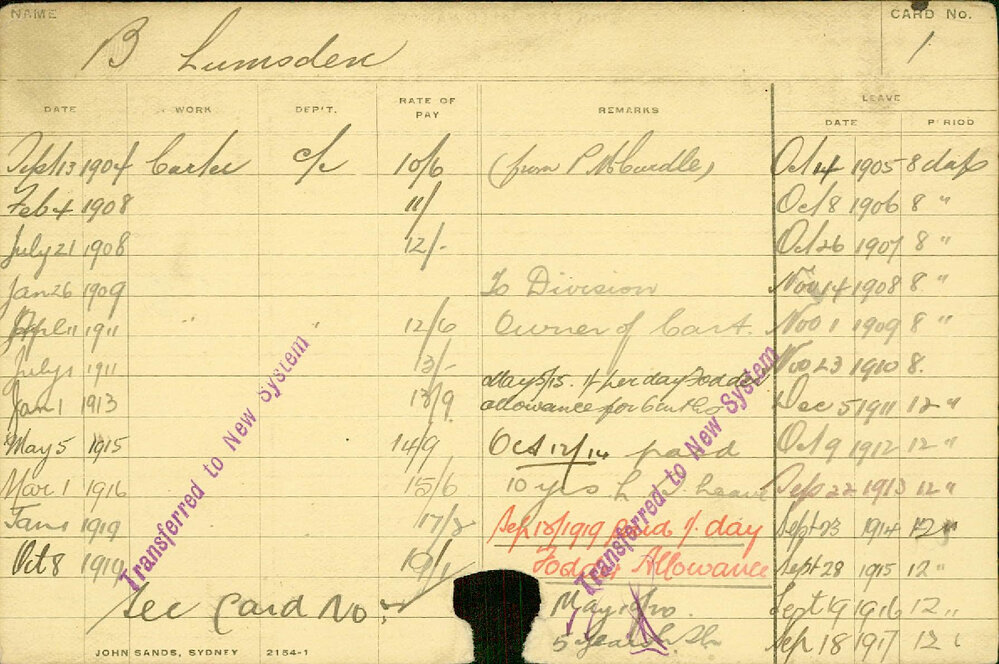 NAME
CARD No.
B Lumsden
1
DATE WORK DEP'T. RATE OF PAY REMARKS LEAVE
DATE PERIOD
Sept 13 1904 Carter c/c 10/6 (from P McCardle) Oct 4 1905 8 days
Feb 4 1908 11/ Oct 8 1906 8 "
July 21 1908 12/- Oct 26 1907 8 "
Jan 26 1909 To Division Nov 14 1908 8 "
April 11 1911 " " 12/6 Owner of Cart. Nov 1 1909 8 "
July 1 1911 13/- Nov 23 1910 8.
May 5/15. 1/ per day Fodder
Jan 1 1913 13/9 allowance for 6 mths Dec 5 1911 12 "
May 5 1915 14/9 Oct 12/14 paid Oct 9 1912 12 "
Mar 1 1916 15/6 10 yrs leave Sep 22 1913 12 "
Jan 1 1919 17/2 Sep 18/1919 Paid 1/ day Sept 23 1914 12 "
Oct 8 1919 19/1 Fodder Allowance Sept 28 1915 12 "
See Card No. 2 May 19/20. Sept 19 1916 12 "
5 years Sep 18 1917 12
Transferred to New System
Transferred to New System
JOHN SANDS, SYDNEY 2154-1